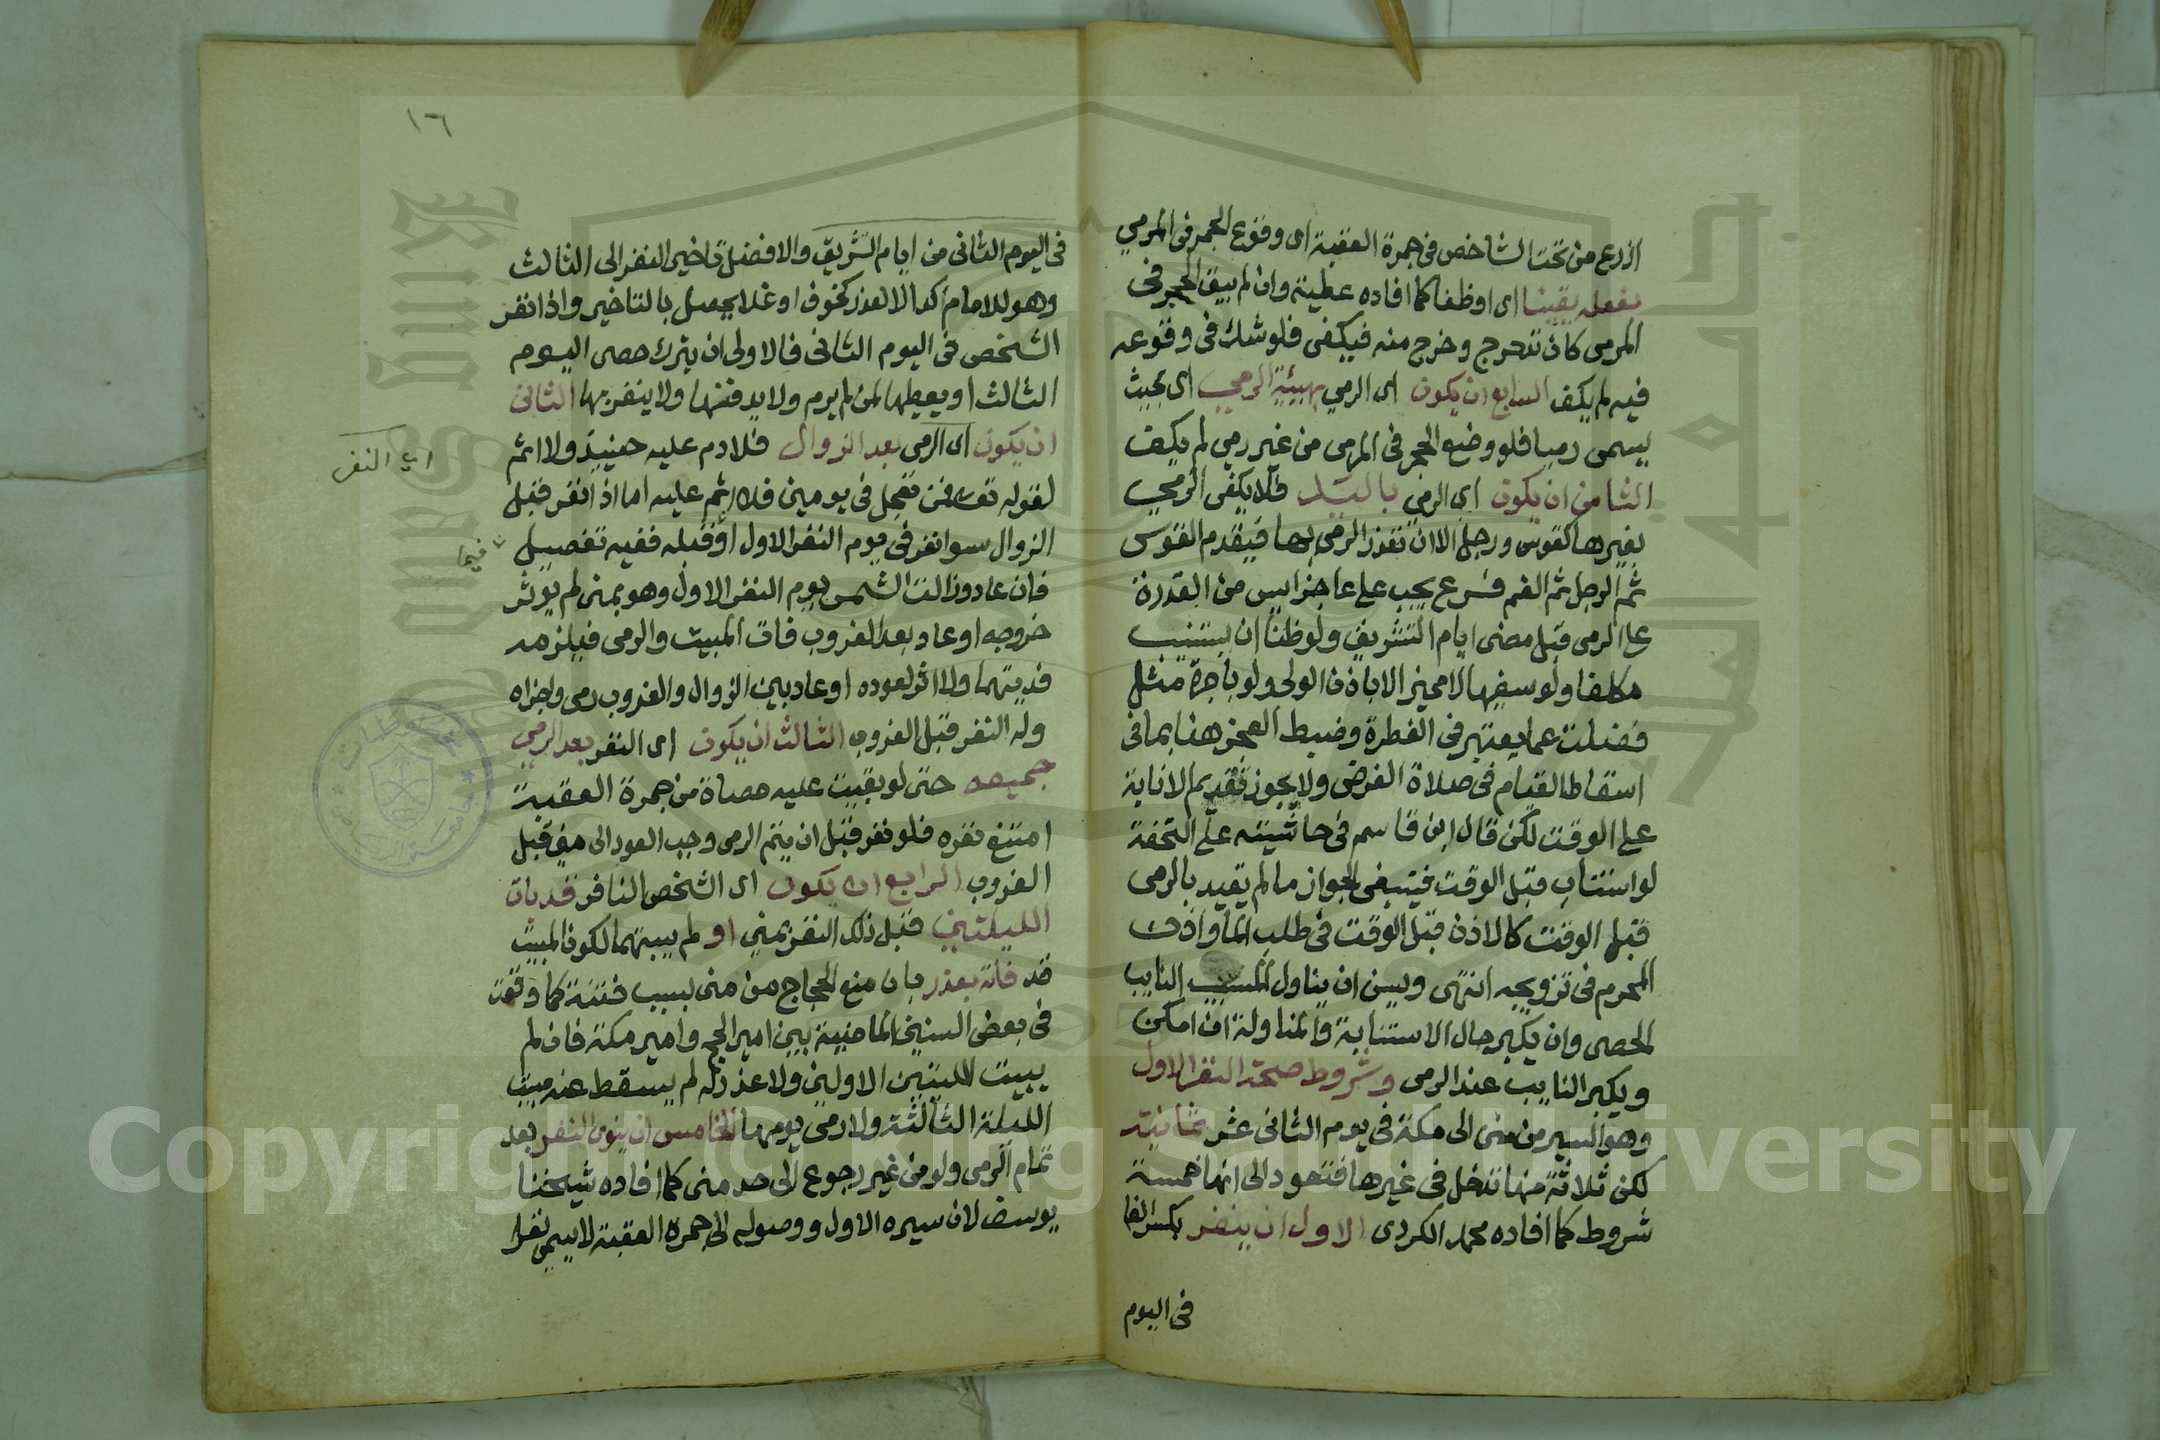 اذرع من تحت الشاخص فى جمرة العقبة اى وقوع الحجر فى المرمي
بفعله يقينا اى او ظنا كما افاده عطية وان لم يبق الحجر فى
المرمى كان تدحرج وخرج منه فيكفى فلو شك فى وقوعه
فيه لم يكف السابع ان يكون اى الرمي بهيئة الرمي اى بحيث
يسمى رميا فلو وضع الحجر فى المرمى من غير رمي لم يكف
الثامن ان يكون اى الرمى باليد فلا يكفى الرمي
بغيرها كقوس ورجل الا ان تعذر الرمي بها فيقدم القوس
ثم الرجل ثم الفم فرع يجب على عاجز ايس من القدرة
على الرمى قبل مضى ايام التشريق ولو ظنا ان يستنيب
مكلفا ولو سفيها لا مميز الا باذن الولى ولو باجرة مثل
فضلت عما يعتبر فى الفطرة وضبط العجز هنا بما فى
اسقاط القيام فى صلاة الفرض ولا يجوز تقديم الانابة
على الوقت لكن قال ابن قاسم فى حاشيته على التحفة
لو استناب قبل الوقت فينبغى الجواز ما لم يقيد بالرمى
قبل الوقت كالاذن قبل الوقت فى طلب الماء واذن
المحرم فى تزويجه انتهى ويسن ان يناول المنيب النايب
الحصى وان يكبر حال الاستنابة والمناولة ان امكن
ويكبر النايب عند الرمى وشروط صحة النفر الاول
وهو السير من منى الى مكة فى يوم الثانى عشر ثمانية
لكن ثلاثة منها تدخل فى غيرها فتعود الى انها خمسة
شروط كما افاده محمد الكردى الاول ان ينفر بكسر الفا
فى اليوم
١٦
فى اليوم الثانى من ايام التشريق والافضل تاخير النفر الى الثالث
وهو للامام اكد الا لعذر كخوف او غلا يحصل بالتاخير واذا نفر
الشخص فى اليوم الثانى فالاولى ان يترك حصى اليوم
الثالث او يعطيها لمن لم يرم ولا يدفنها ولا ينفر بها الثانى
ان يكون اى الرمى بعد الزوال فلا دم عليه حينيذ ولا اثم
اي النفر
لقوله تعالى فمن تعجل فى يومين فلا اثم عليه اما اذا نفر قبل
الزوال سوا نفر فى يوم النفر الاول او قبله ففيه تفصيل
فيها
فان عاد وزالت الشمس يوم النفر الاول وهو بمنى لم يوثر
خروجه او عاد بعد الغروب فات المبيت والرمى فيلزمه
فديتهما ولا اثر لعوده او عاد بين الزوال والغروب رمى واجزاه
وله النفر قبل الغروب الثالث ان يكون اى النفر بعد الرمي
جميعه حتى لو بقيت عليه حصاة من جمرة العقبة
امتنع نفره فلو نفر قبل ان يتم الرمى وجب العود الى منى قبل
الغروب الرابع ان يكون اى الشخص النافر قد بات
الليلتين قبل ذلك النفر بمنى او لم يبيتهما لكون المبيت
قد فاته بعذر بان منع الحجاج من منى بسبب فتنة كما وقعت
فى بعض السنين الماضية بين امير الحج وامير مكة فان لم
يبيت الليلتين الاوليين ولا عذر له لم يسقط عنه مبيت
الليلة الثالثة ولا رمى يومها الخامس ان ينوى النفر بعد
تمام الرمى ولو من غير رجوع الى حد منى كما افاده شيخنا
يوسف لان سيره الاول ووصوله الى جمرة العقبة لا يسمى نفرا
Copyright © King Saud University